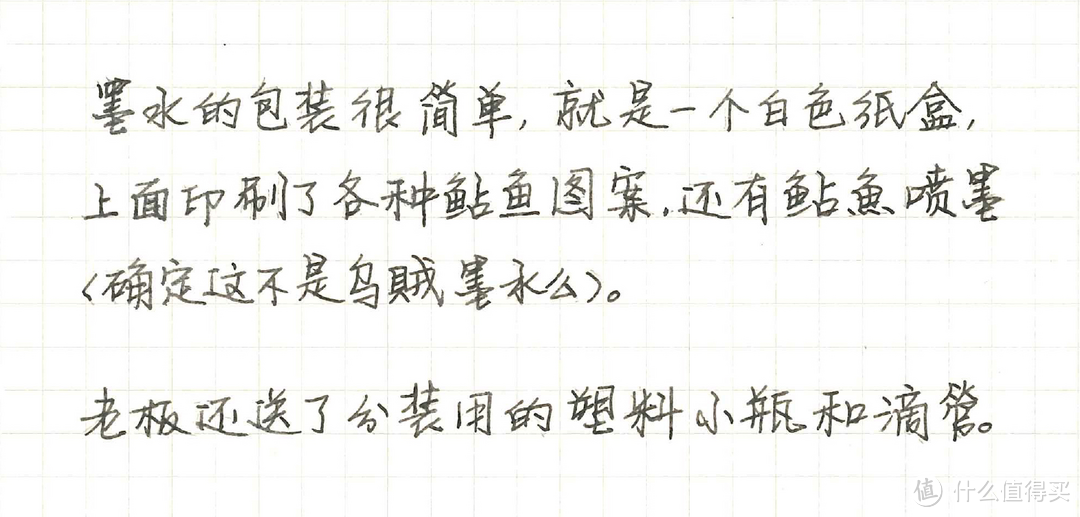 墨水的包装很简单，就是一个白色纸盒，
上面印刷了各种鲇鱼图案，还有鲇魚喷墨
〈确定这不是乌贼墨水么〉。
老板还送了分装用的塑料小瓶和滴管。
值 什么值得买